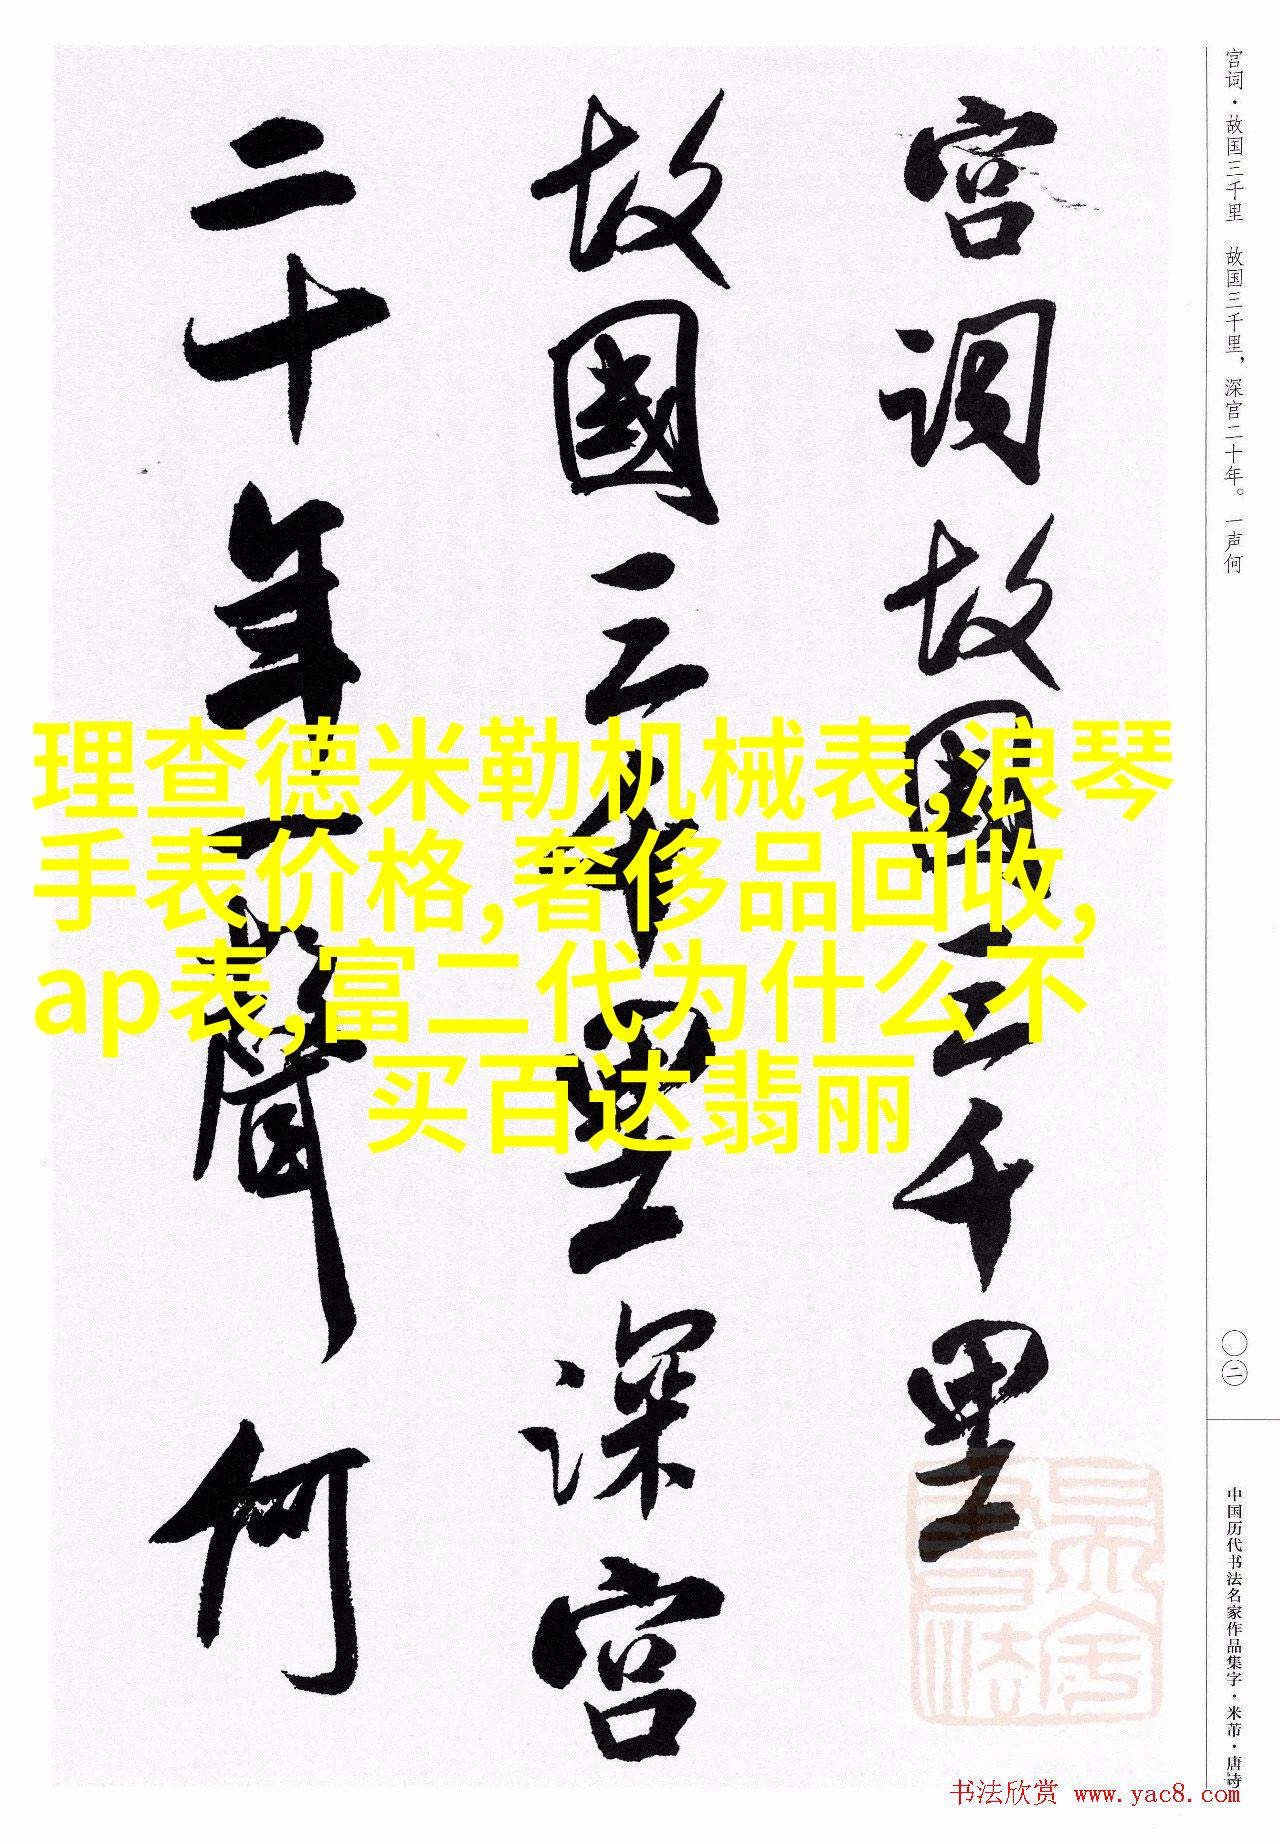 宫词故国三千里
故國三千里深宫
二十年一聲何
理查德米勒机械表,浪琴
手表价格,奢侈品回收,
ap表,富二代为什么不
买百达翡丽
宫词·故国三千里 故国三千里，深宫二十年。一声何
〇二
中国历代书法名家作品集字·米芾·唐诗
书法欣赏 www.yac8.com